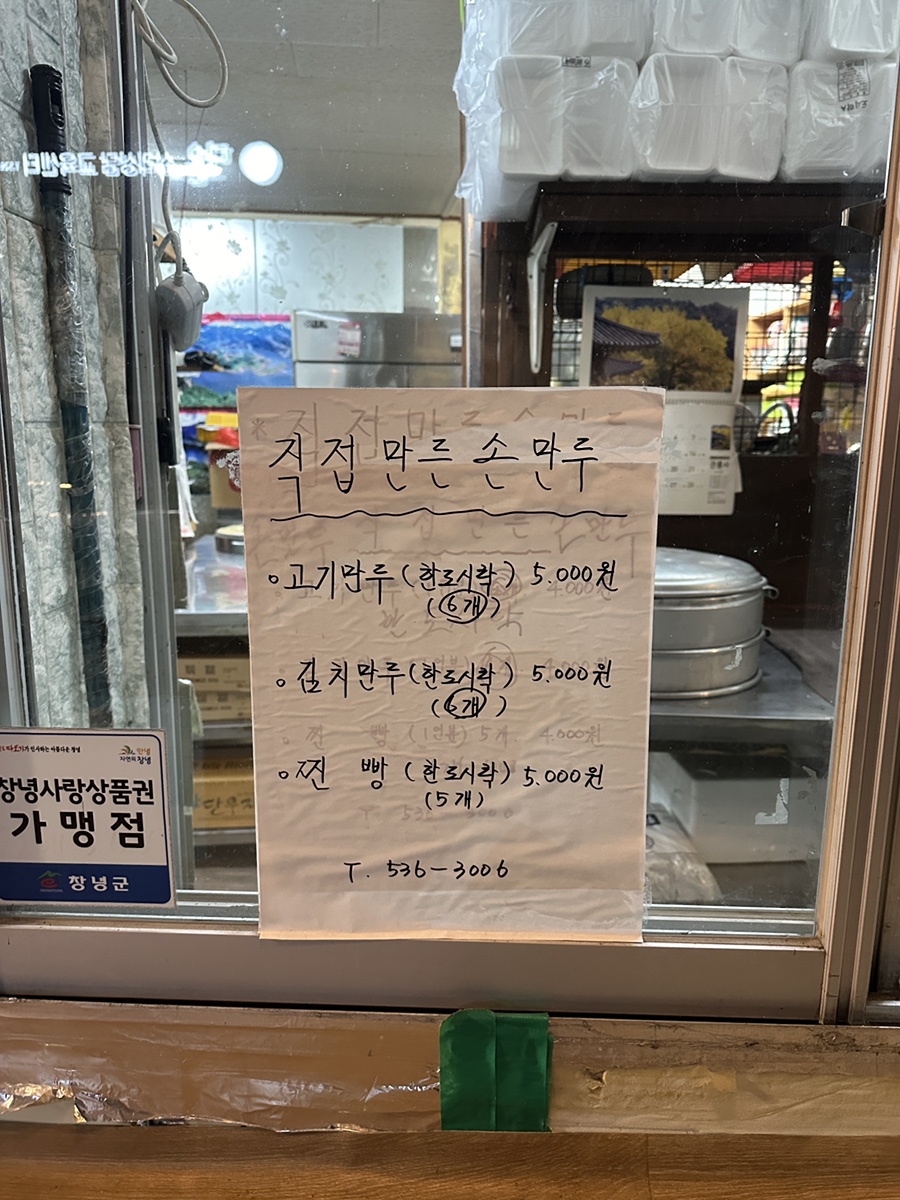 직접 만든 손만두
고기만두 (한도시락) 5.000원
(6개)
김치만두 (한도시락) 5.000원
(6개)
찐 빵 (한도시락) 5.000원
(5개)
T. 536-3006
창녕사랑상품권
가맹점
창녕군